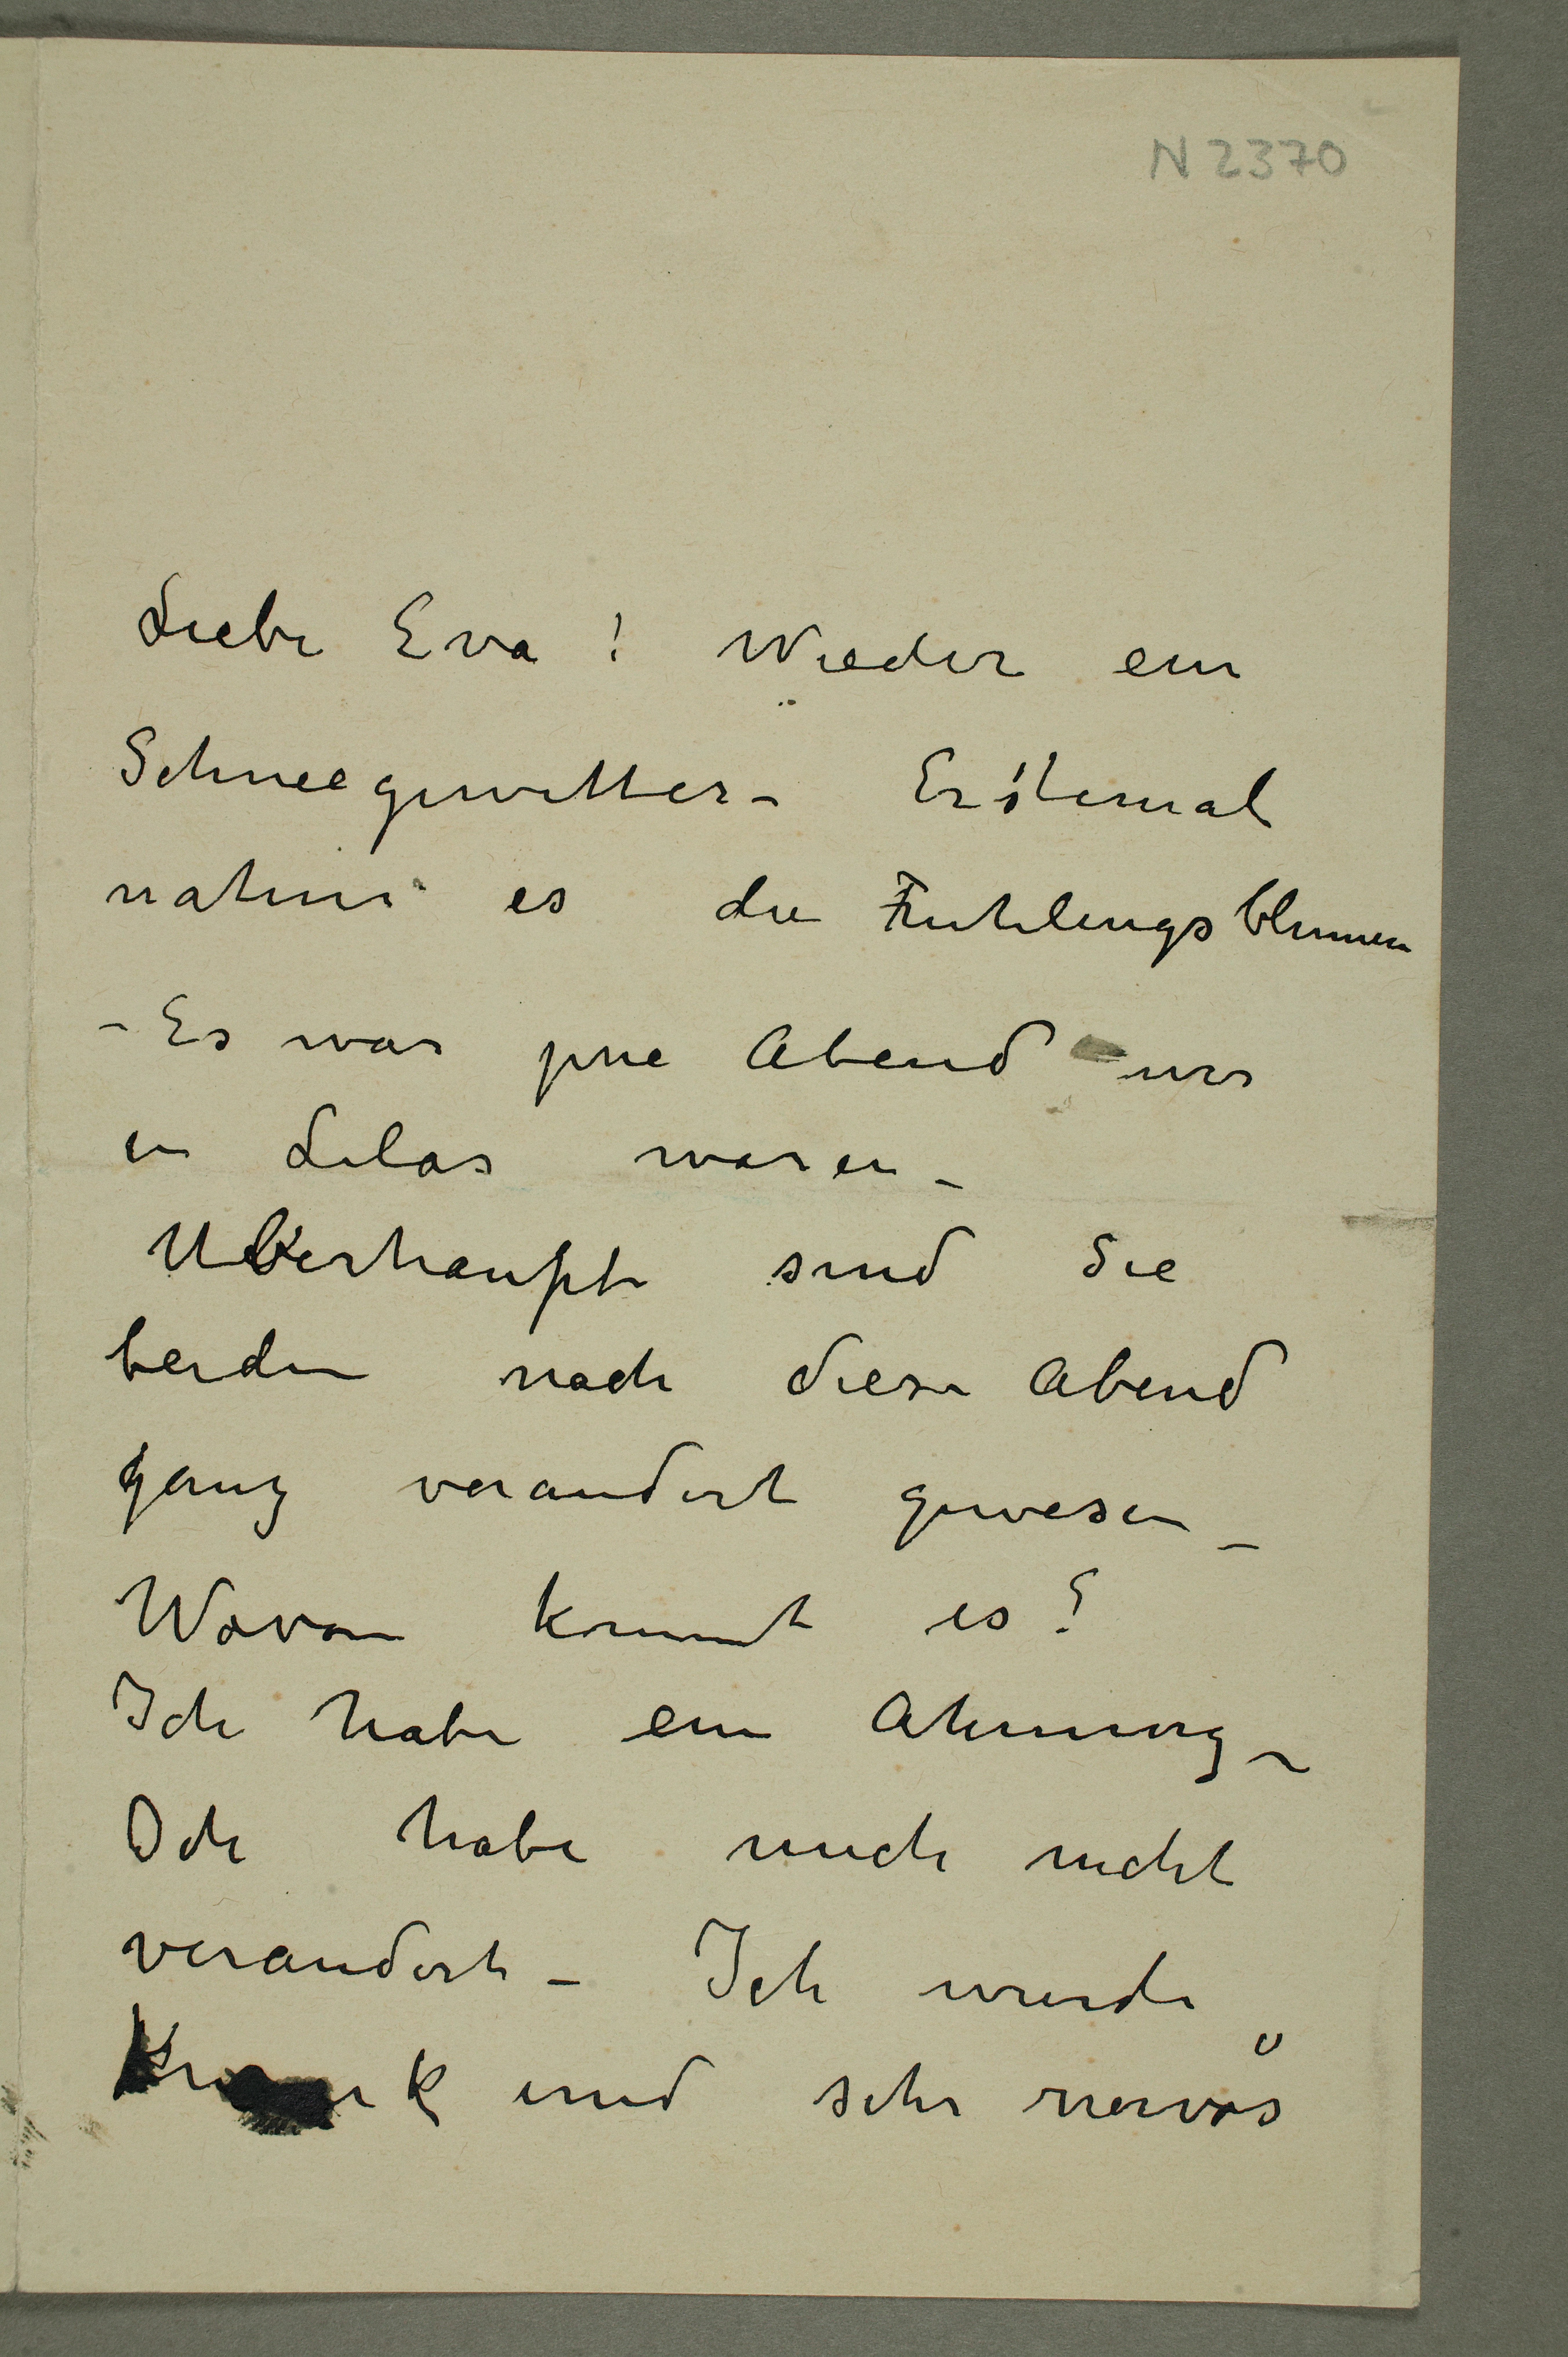 N 2370
Liebe Eva! Wieder ein
Schneegewitter – Erstemal
nahm es die Fruhlingsblumen
– Es war jene Abend wir
in Lilas waren –
Uberhaupt sind Sie
beiden nach diese Abend
ganz verandert gewesen –
Wovon kommt es?
Ich habe ein Ahnung –
Ich habe mich nicht
verandert – Ich wurde
Krank und sehr nervös